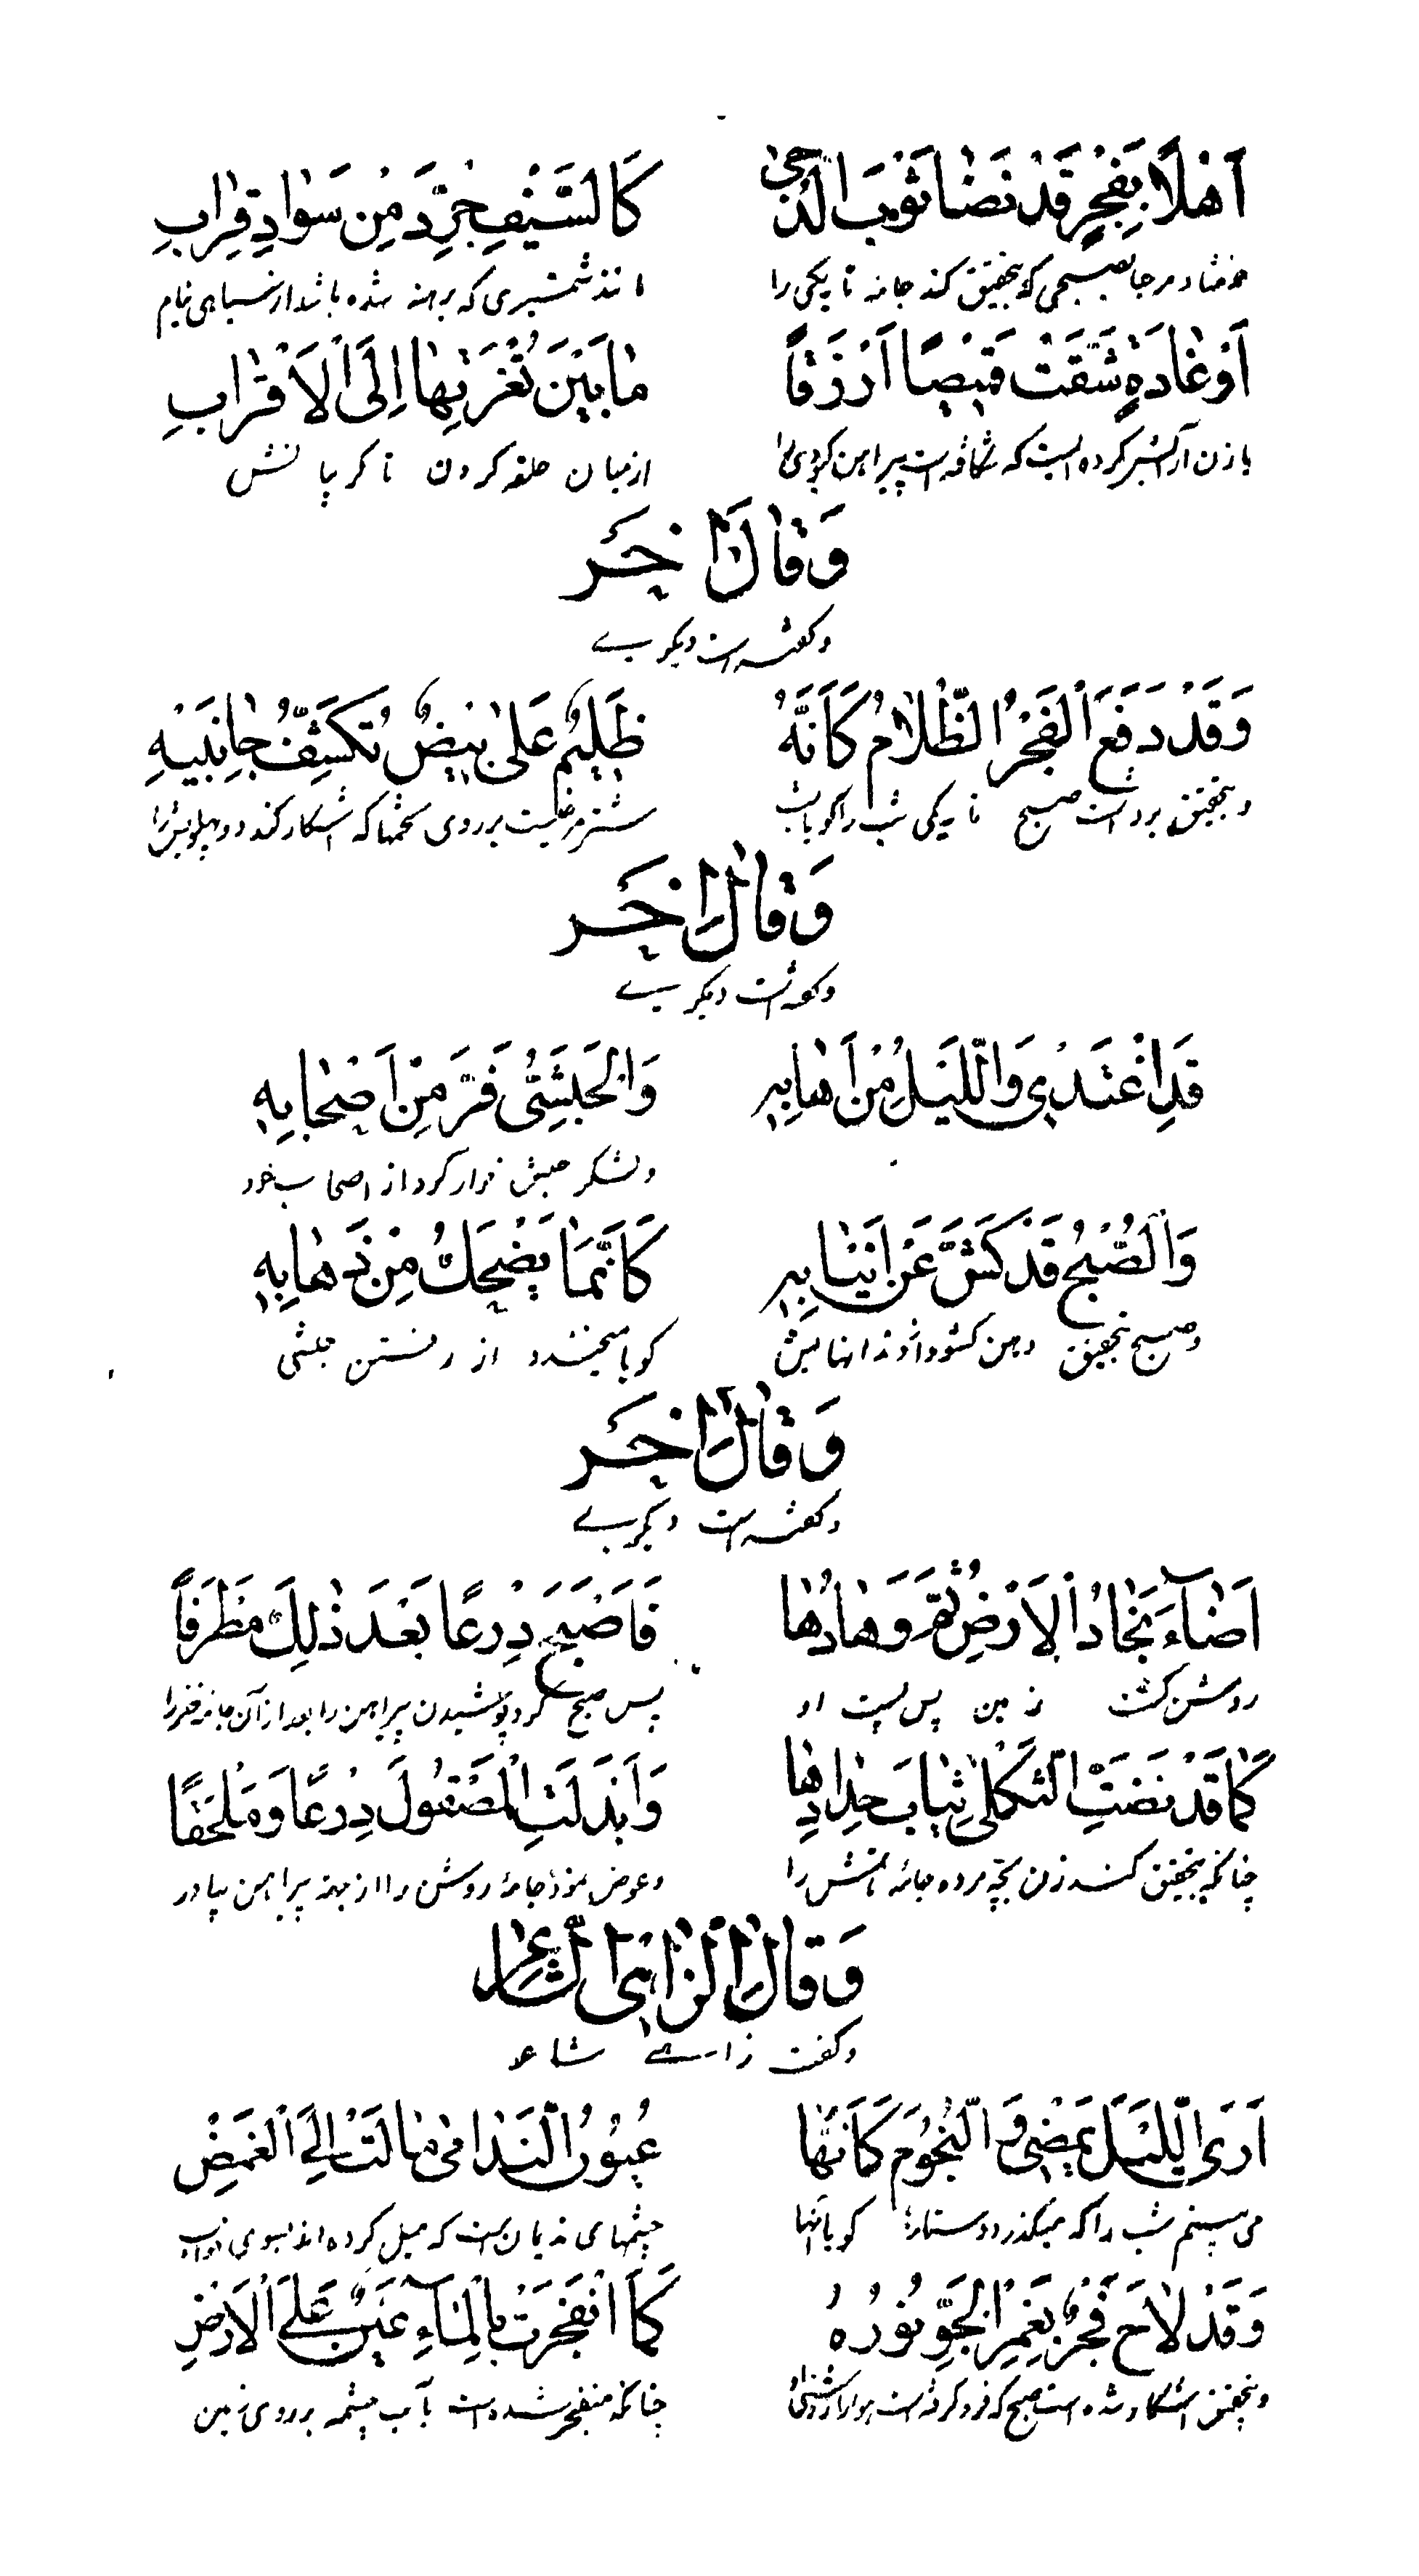 اَهْلًا بِفَجْرٍ قَدْ نَضٰا ثَوْبَ الدُّجىٰ كَالسَّیْفِ جُرِّدَ مِنْ سَوٰادِ قِرٰابِ
مرحبا بصبحی که بتحقیق کند جامه تاریکی را مانند شمشیری که برهنه شده باشد از سیاهی نیام
اَوْ غٰادَةٍ شَقَّتْ قَمٖیصًا اَزْرَقًا مٰا بَیْنَ ثُغْرَتِهٰا اِلَی الْاَقْرٰابِ
یا زن که شکافته است پیراهن کبودی از میان کردن تا
وَ قٰالَ اٰخَر
و گفته است دیگری
وَ قَدْ رَفَعَ الْفَجْرُ الظَّلٰامَ کَاَنَّهُ ظَلٖیمٌ عَلیٰ بَیْضٍ تَکَشَّفَ جٰانِبَیْهِ
و بتحقیق برداشت صبح تاریکی شب را گویا شتر مرغیست بر روی تخمها که آشکار کند دو پهلویش را
وَ قٰالَ اٰخَر
و گفته است دیگری
قَدِ اغْتَدٖی وَ اللَّیْلُ مِنْ اَهٰابِهٖ وَ الْحَبَشِیُّ فَرَّ مِنْ اَصْحٰابِهٖ
و لشکر حبش فرار کرد از اصحاب خود
وَ الصُّبْحُ قَدْ کَشَّرَ عَنْ اَنْیٰابِهٖ کَاَنَّمٰا یَضْحَكُ مِنْ ذَهٰابِهٖ
و صبح بتحقیق دهن گشود گویا میخندد از رفتن حبشی
وَ قٰالَ اٰخَر
و گفته است دیگری
اَضٰاءَ نِجٰادُ الْاَرْضِ ثُمَّ وَ هٰادُهٰا فَاَصْبَحَ دِرْعًا بَعْدَ ذٰلِكَ مُطْرَفًا
روشن گشت زمین پس پست او پس صبح کرد پوشیدن پیراهن را بعد از آن جامه خز را
کَمٰا قَدْ نَضَتِ الثَّکْلیٰ ثِیٰابَ حِدٰادِهٰا وَ اَبْدَلَتِ الْمَصْقُولَ دِرْعًا وَ مُلْحَفًا
چنانکه بتحقیق کند زن بچه مرده جامه را و عوض نمود جامه روشن را از جهة پیراهن و چادر
وَ قٰالَ الزّٰاهِی الشّٰاعِرُ
و گفت زاهی شاعر
اَرَی اللَّیْلَ یَمْضٖی وَ النُّجُومَ کَاَنَّهٰا عُیُونُ النَّدٰامیٰ مٰالَتْ اِلَی الْغَمْضِ
می بینم شب را که میگذرد و ستاره گویا آنها چشمهای ندیمان است که میل کرده اند بسوی خواب
وَ قَدْ لٰاحَ فَجْرٌ یَغْمِرُ الْجَوَّ نُورُهُ کَمَا انْفَجَرَتْ بِالْمٰاءِ عَیْنٌ عَلَی الْاَرْضِ
و بتحقیق آشکار شده است صبح که فرو گرفته است هوا را روشنی او چنانکه منفجر شده است بآب چشمه بر روی زمین